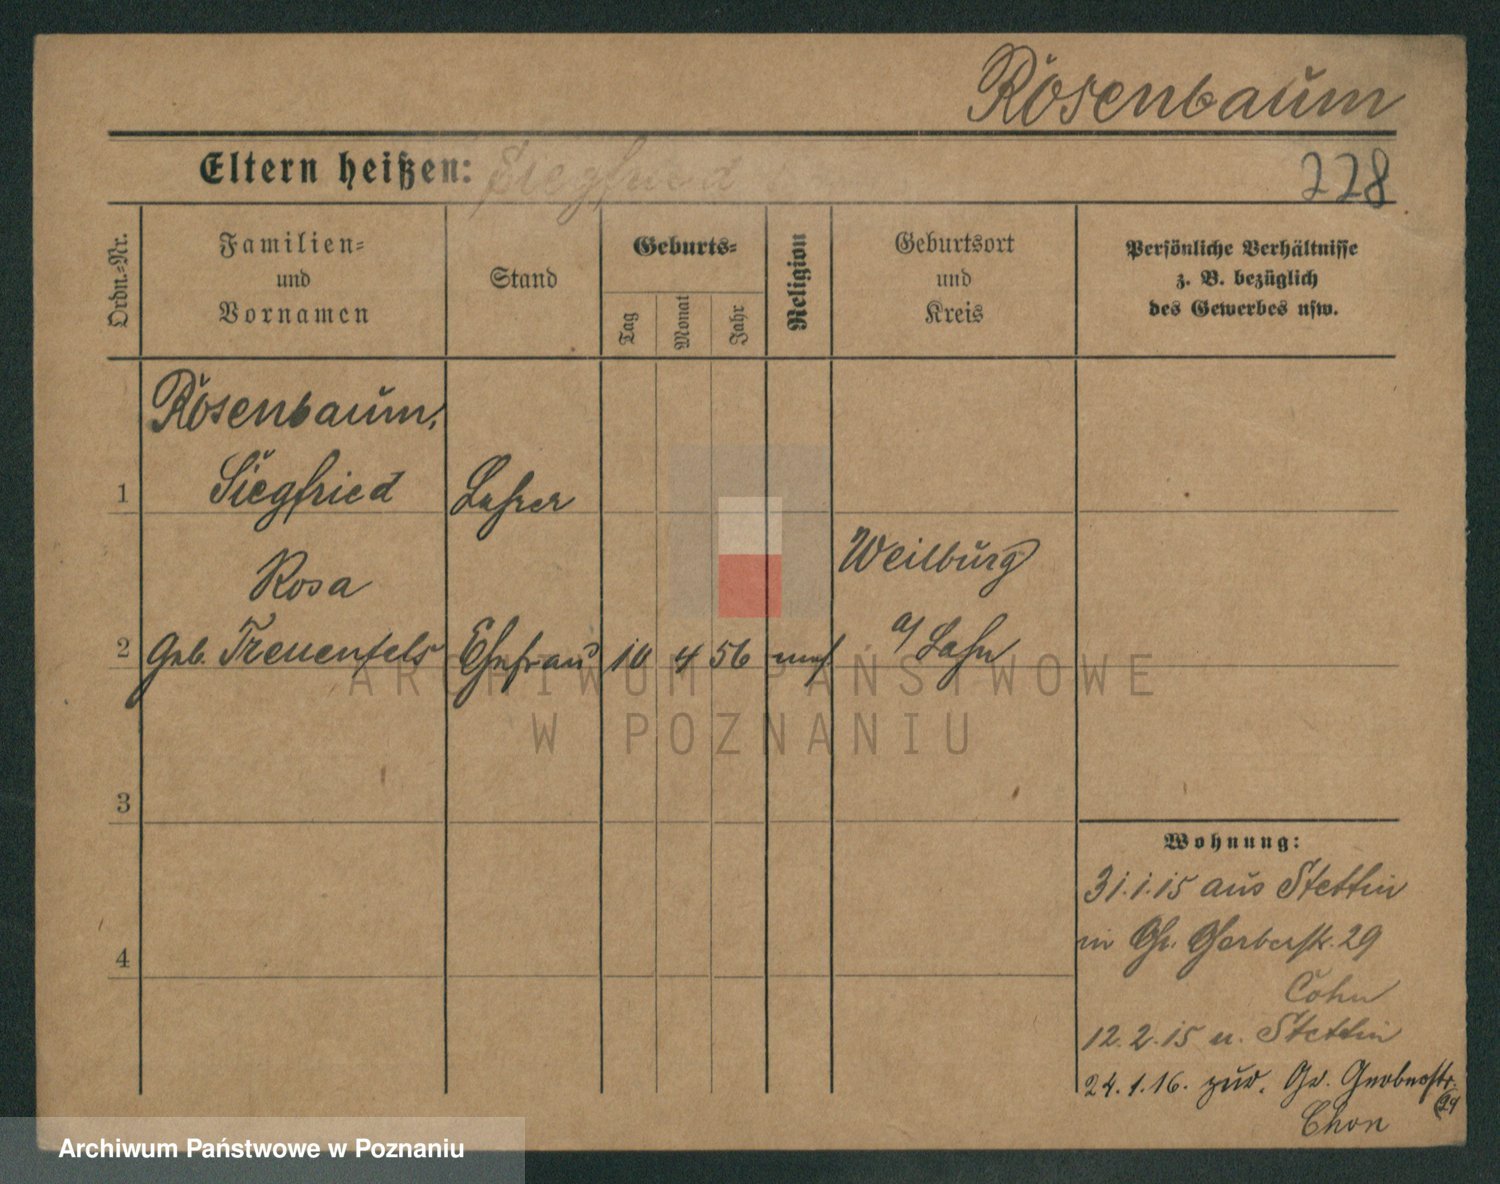 Rosenbaum
Eltern heißen: Siegfried
228
Ordn.-Nr.
Familien-
und
Vornamen
Stand
Geburts-
Tag
Monat
Jahr
Religion
Geburtsort
und
Kreis
Persönliche Verhältnisse
z. B. bezüglich
des Gewerbes usw.
Rosenbaum,
1 Siegfried Lehrer
Rosa
Weilburg
2 geb. Treuenfels Ehefrau 10 4 56 mos a/ Lahn
3
4
Wohnung:
31.1.15 aus Stettin
in Gr. Gerberstr. 29
Cohn
12.2.15 n. Stettin
24.1.16. zur. Gr. Gerberstr.
Chon
ARCHIWUM PAŃSTWOWE
W POZNANIU
Archiwum Państwowe w Poznaniu